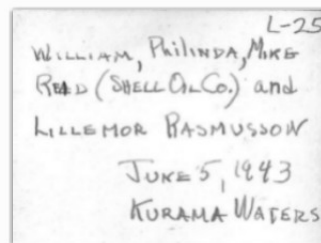 L-25
WILLIAM, PHILINDA, MIKE
REED (SHELL OIL CO.) and
LILLEMOR RASMUSSON
JUNE 5, 1943
KURAMA WATERS